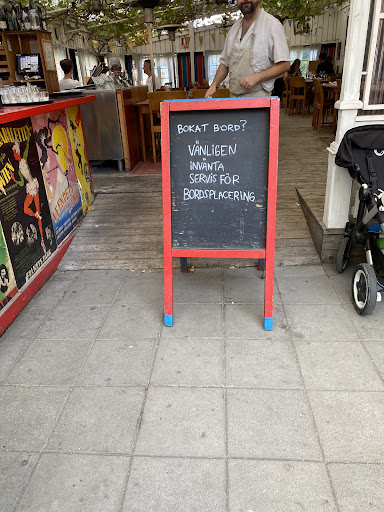 BOKAT BORD?
VÄNLIGEN
INVÄNTA
SERVIS FÖR
BORDSPLACERING